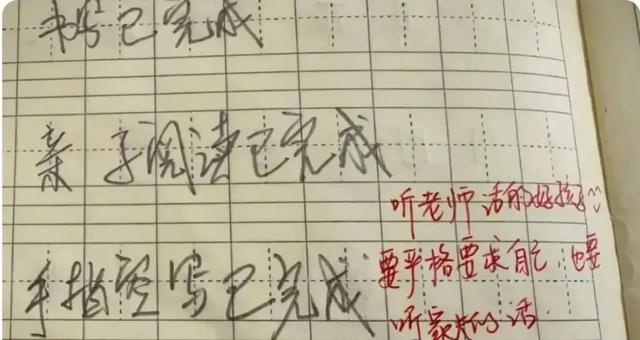 书写已完成
亲子阅读已完成
听老师话的好孩子
手指空写已完成
要严格要求自己,也要
听家长的话